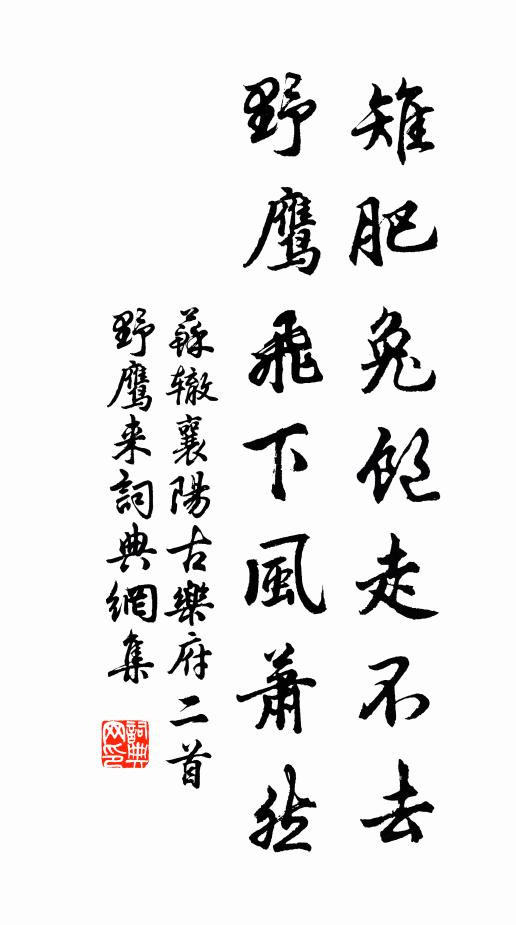 雉肥兔飽走不去
野鷹飛下風蕭然
蘇辙襄陽古樂府二首
野鷹来詞典網集
詞典
网印